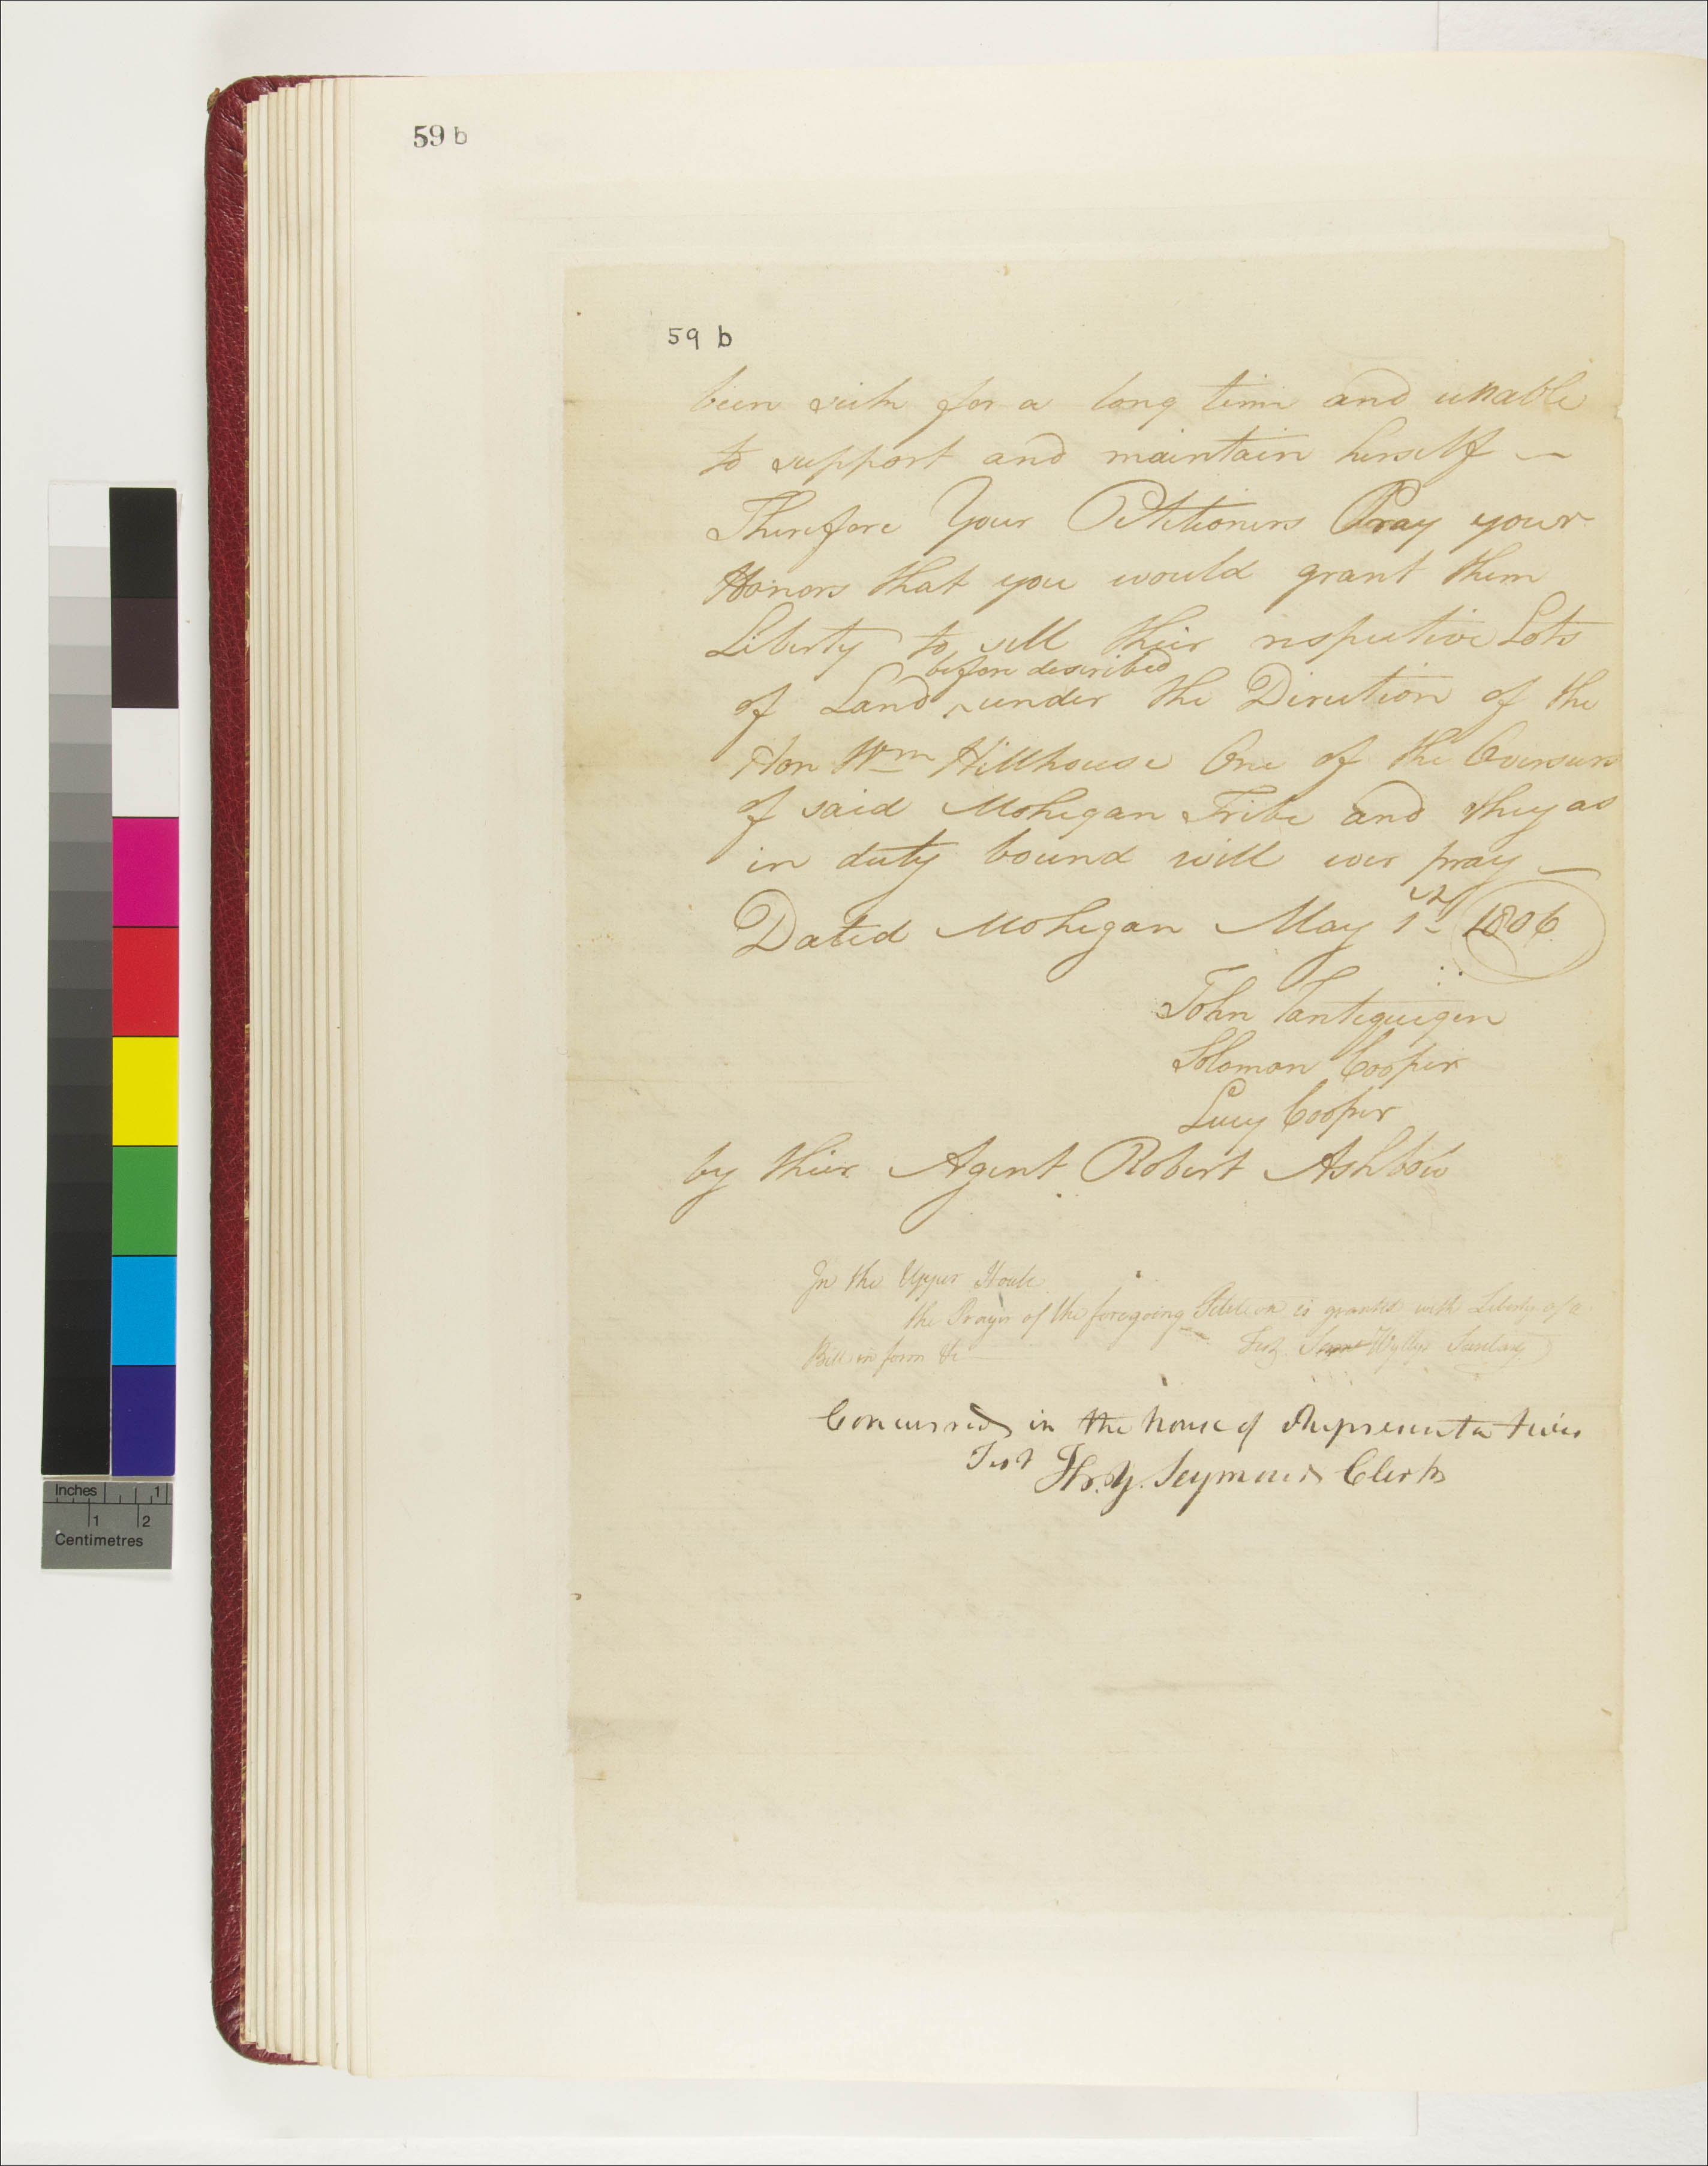 59 b
59 b
been sick for a long time and unable
to support and maintain herself —
Therefore Your Petitioners Pray your
Honors that you would grant them
Liberty to sell thier respective Lots
before described
of Land ^ under the Direction of the
Hon Wm Hillhouse One of the Overseers
of said Mohegan Tribe and they as
in duty bound will ever pray —
Dated Mohegan May 1st 1806
John Tantequigen
Solomon Cooper
Lucy Cooper
by thier Agent Robert Ashbow
In the Upper House
the Prayer of the foregoing Petition is granted with Liberty of a
Bill in form &c
Test Saml Wyllys Secretary
Concurred in the house of Representatives
Test Thos. Y. Seymour Clerk
Inches 1
1 2
Centimetres